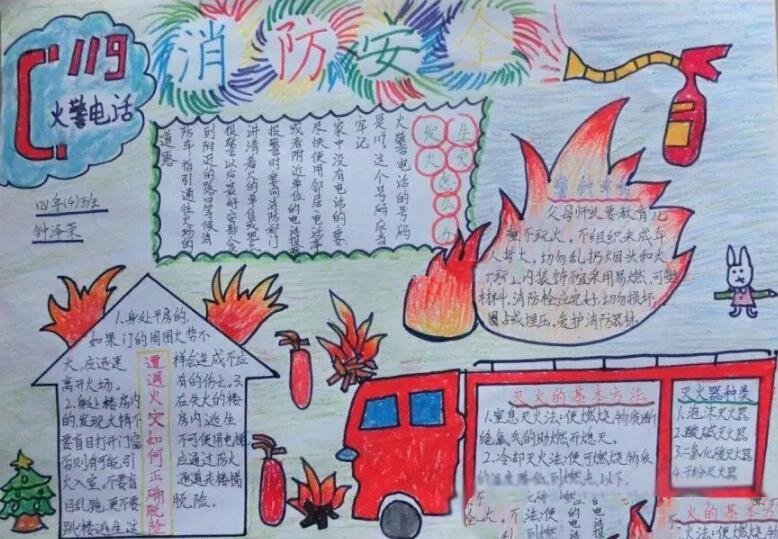 119
火警电话
消防安全
四年(4)班
钟泽荣
发生火灾怎么办
火警电话的号码
是119这个号码应当
牢记
家中没有电话的,要
尽快使用邻居电话亭
或者附近单位的电话报
报警时要向消防部门
讲清着火的单位或
报警以后最好安排人
到附近的路口等候消
防车,指引通往火场的
道路
父母师长要教育儿
童不玩火。不组织未成年
人救火。切勿乱扔烟头和火
上内装饰不宜采用易燃、可塑
材料,消防栓应完好,切勿损坏
圈占或埋压。爱护消防器材
1、身处平房的,
如果门的周围火势不
大,应迅速
离开火场。
2、身处楼房内
的发现火情不
要盲目打开门窗
否则有可能引
火入室,不要盲
目乱跑、更不要
跳楼逃生,这
遭遇火灾如何正确脱险
样会造成不应
有的伤亡。3、
在失火的楼
房内逃生
不可使用电梯
应通过防火
通道走楼梯
脱险。
灭火的基本方法
1、窒息灭火法:使燃烧物质断
绝氧气的助燃而熄灭。
2、冷却灭火法:使可燃烧物质
的温度降低到燃点以下。
灭火器种类
1、泡沫灭火器
2、酸碱灭火器
3、二氧化碳灭火器
4、干粉灭火器
火的基本方